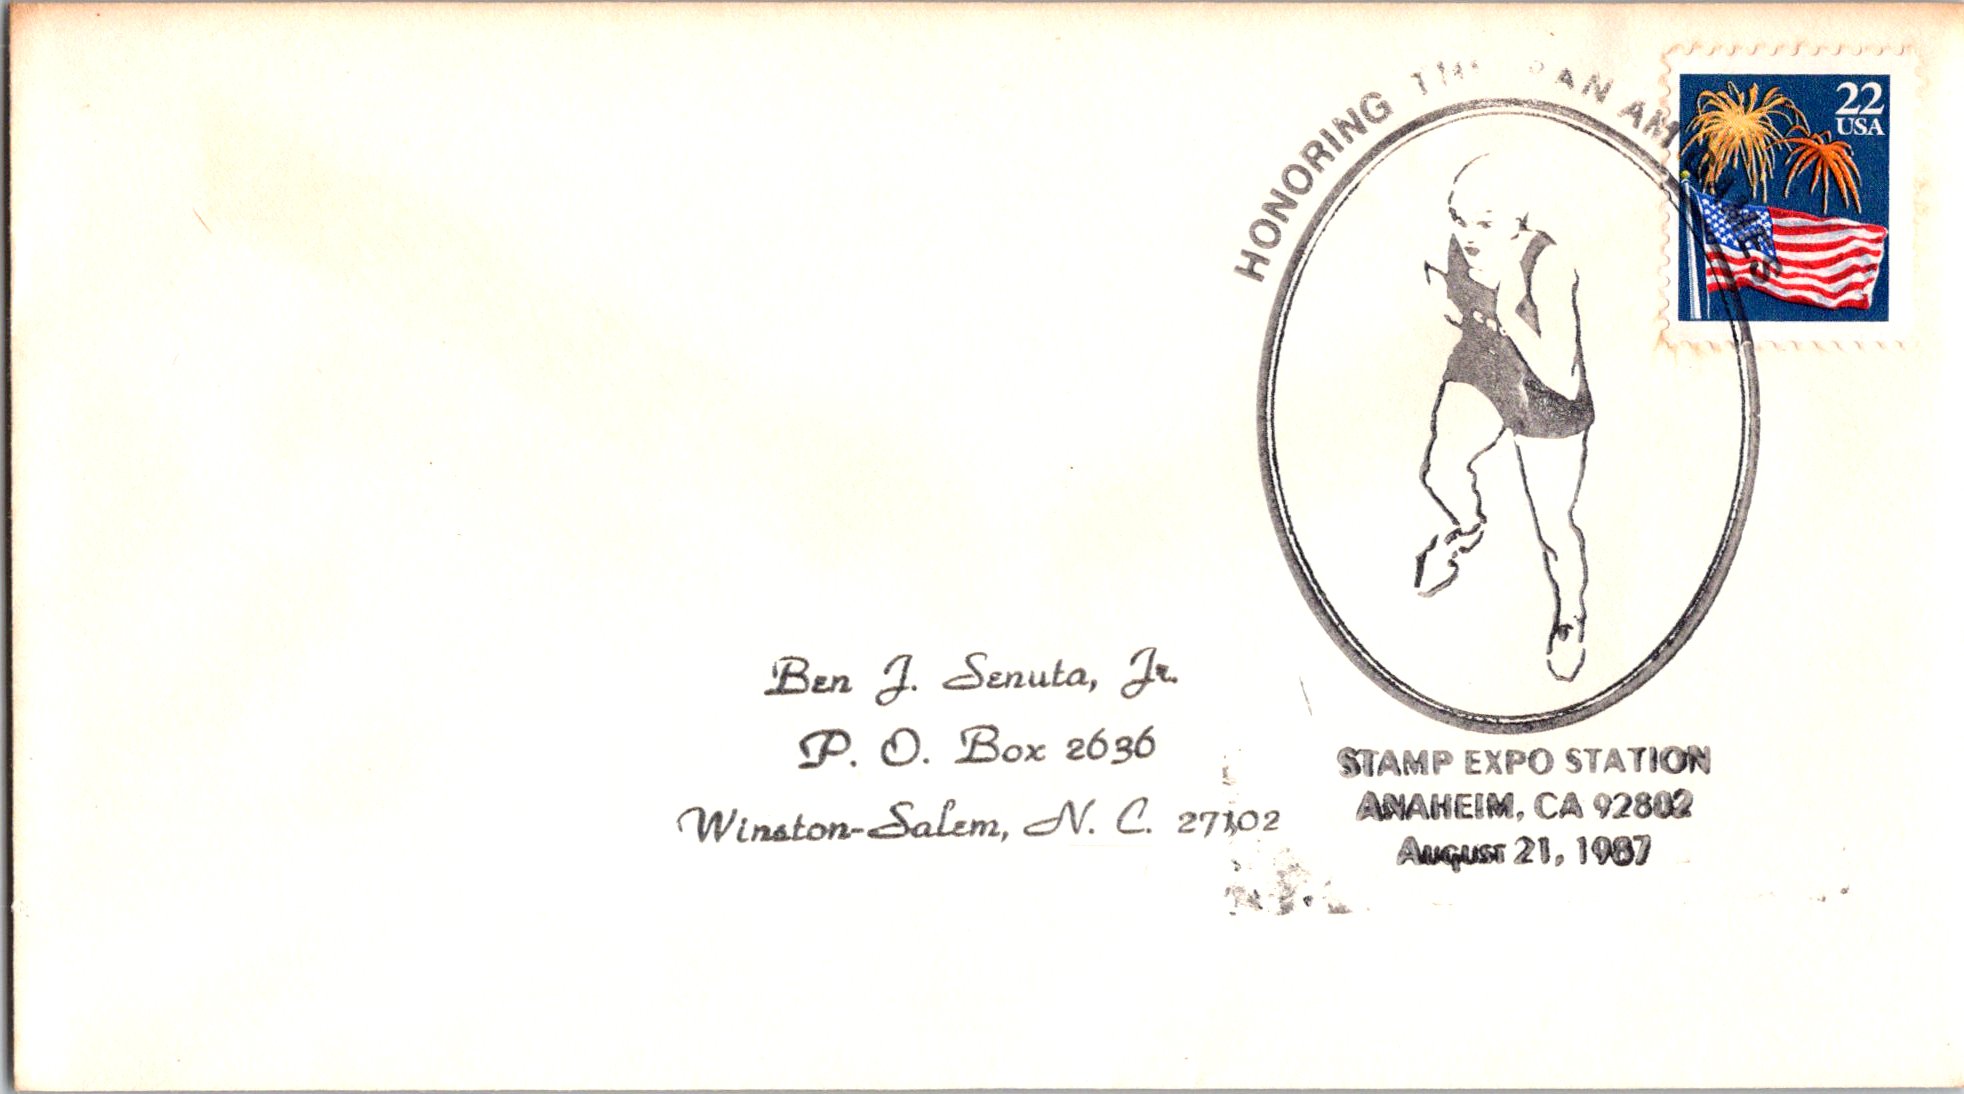 HONORING THE PAN AM GAMES
22
USA
Ben J. Senuta, Jr.
P. O. Box 2636
Winston-Salem, N. C. 27102
STAMP EXPO STATION
ANAHEIM, CA 92802
AUGUST 21, 1987